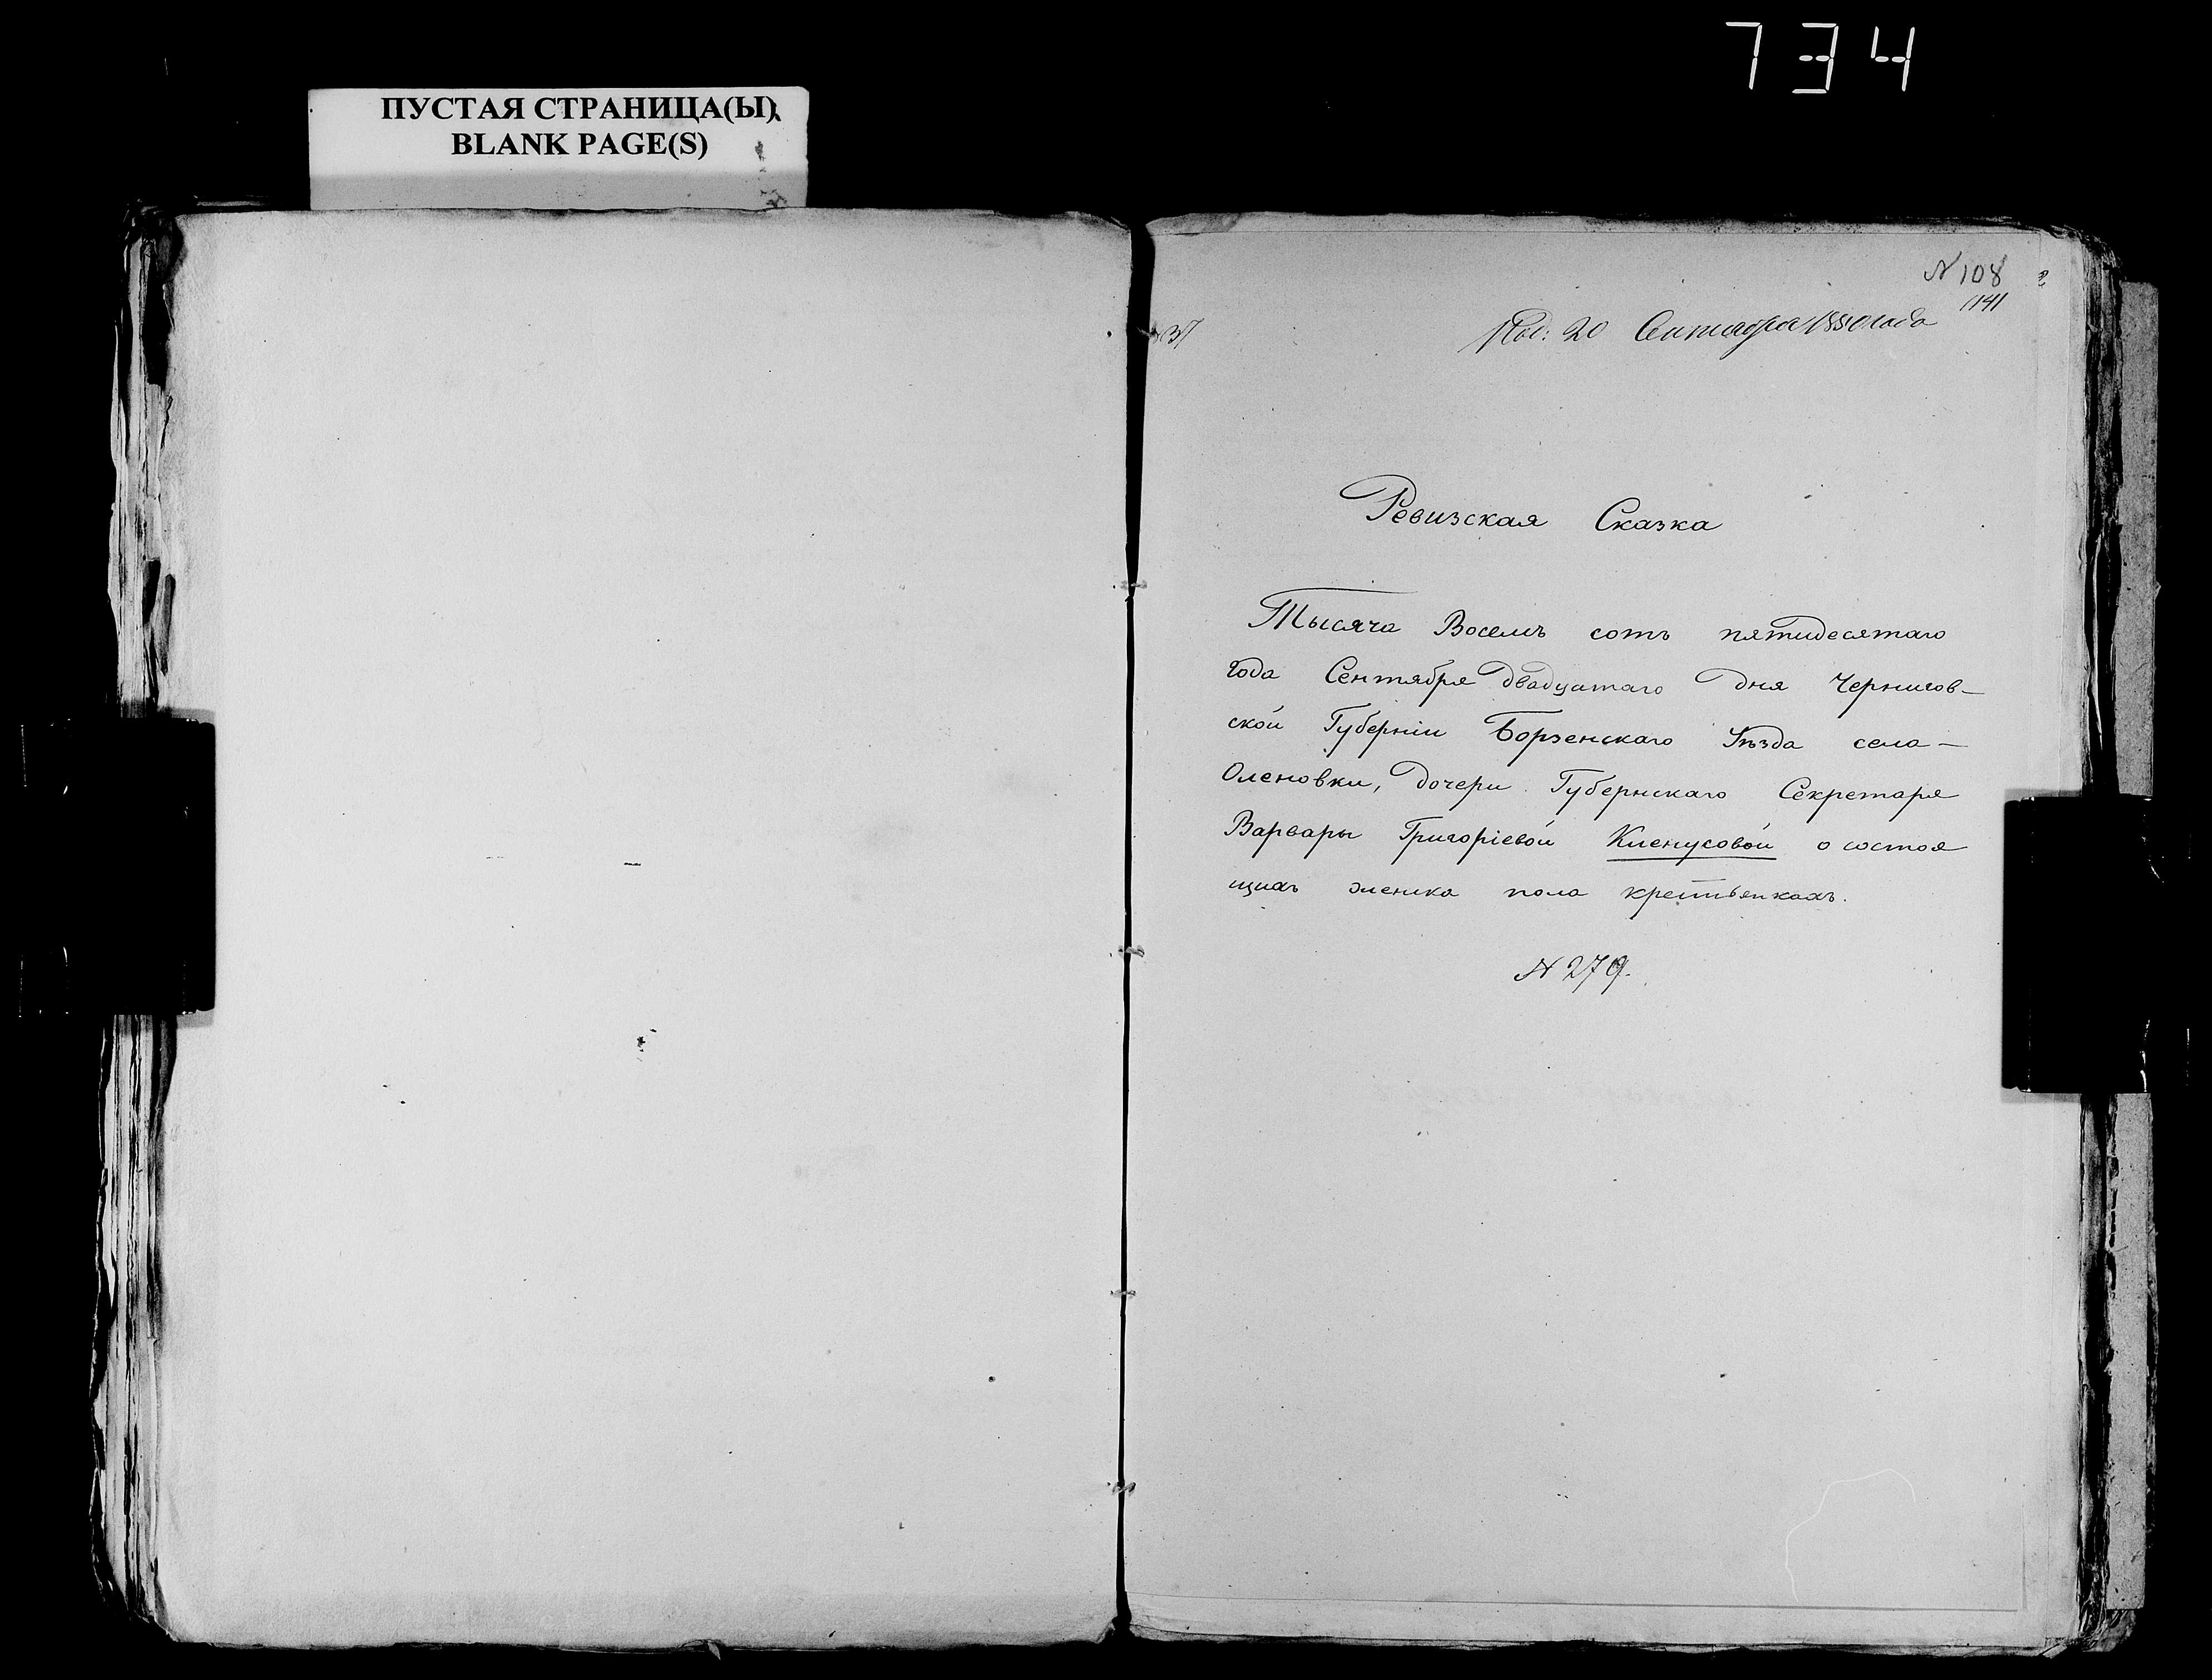 734
ПУСТАЯ СТРАНИЦА(Ы)
BLANK PAGE(S)
N 108
1141
Пол: 20 Сентября 1850 года
Ревизская Сказка
Тысяча Восемъ сотъ пятидесятаго
года Сентября двадцатаго дня Чернигов-
ской Губерніи Борзенскаго Уѣзда села-
Оленовки, дочери Губернскаго Секретаря
Варвары Григоріевой Кленусовой о состоя
щихъ женска пола крестьянкахъ.
N 279.